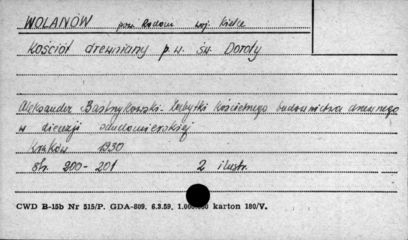 WOLANÓW pow. Radom woj. Kielce
Kościół drewniany p.w. św. Doroty
Aleksander Bastrzykowski - Zabytki kościelnego budownictwa drewnianego
w diecezji sandomierskiej
Kraków 1930
Str. 200-201 2 ilustr.
CWD B-15b Nr 515/P. GDA-809. 6.3.59, 1.000.000 karton 180/V.